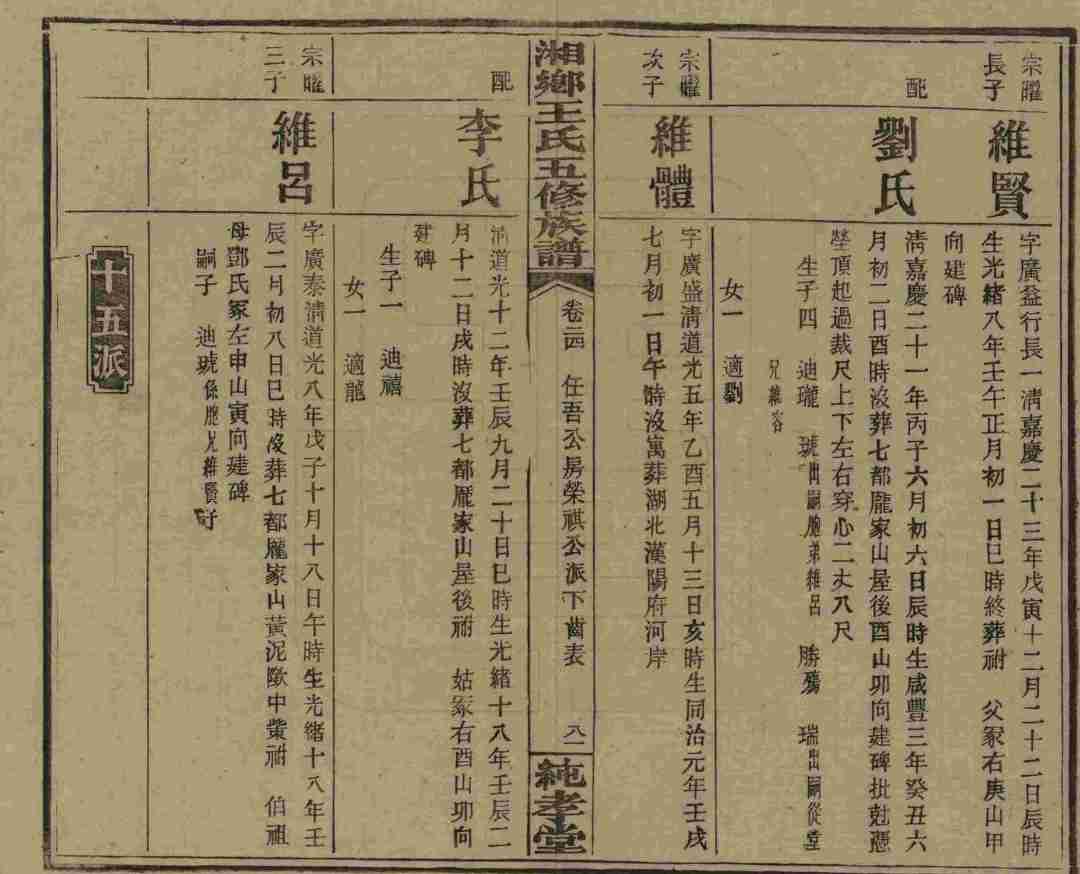 宗曜
長子
維賢
字廣益行長一淸嘉慶二十三年戊寅十二月二十二日辰時
生光緒八年壬午正月初一日巳時終葬祔　父冢右庚山甲
向建碑
配
劉氏
淸嘉慶二十一年丙子六月初六日辰時生咸豐三年癸丑六
月初二日酉時沒葬七都龎家山屋後酉山卯向建碑批尅憑
塋頂起過裁尺上下左右穿心二丈八尺
生子四　迪瓏　琥出嗣胞弟維呂　勝殤　瑞出嗣從堂
兄維容
女一　適劉
宗曜
次子
維體
字廣盛淸道光五年乙酉五月十三日亥時生同治元年壬戌
七月初一日午時沒寓葬湖北漢陽府河岸
湘鄉王氏五修族譜
卷二四　任吾公房榮祺公派下齒表　八一
純孝堂
配
李氏
淸道光十二年壬辰九月二十日巳時生光緒十八年壬辰二
月十二日戌時沒葬七都龎家山屋後祔　姑冢右酉山卯向
建碑
生子一　迪禧
女一　適龍
宗曜
三子
維呂
字廣泰淸道光八年戊子十月十八日午時生光緒十八年壬
辰二月初八日巳時沒葬七都龎家山黃泥墩中塋祔　伯祖
母鄧氏冢左申山寅向建碑
嗣子　迪琥係胞兄維賢子
十五派